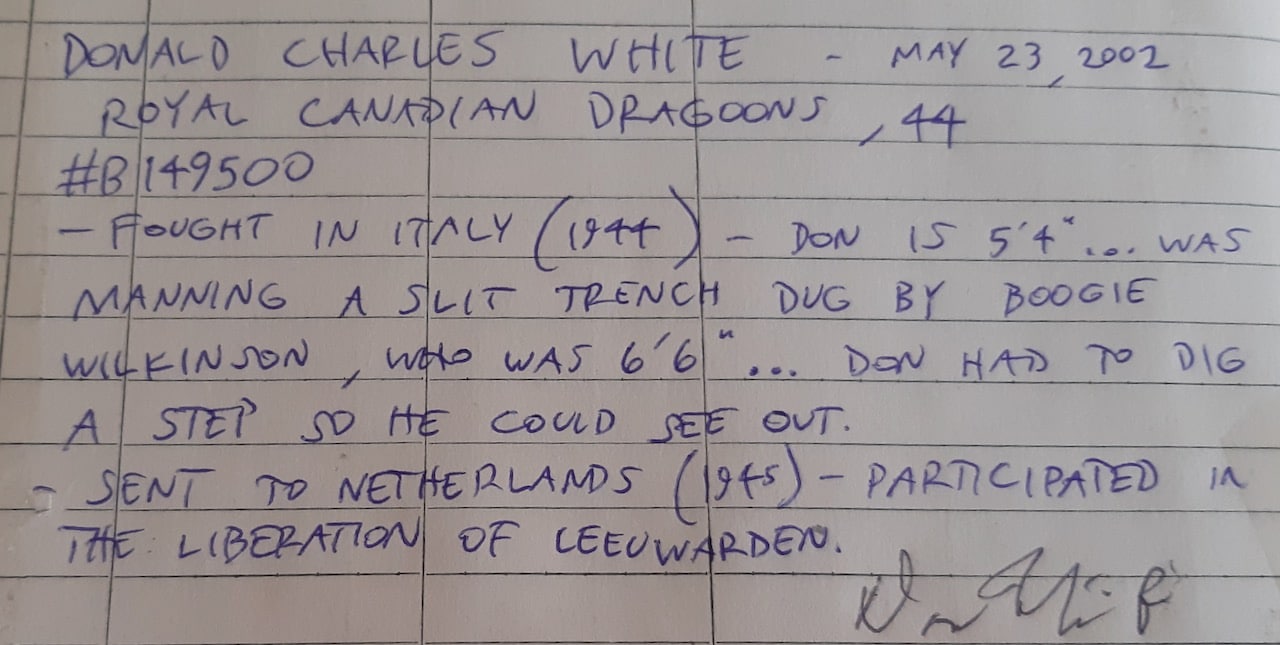 DONALD CHARLES WHITE - MAY 23, 2002
ROYAL CANADIAN DRAGOONS, 44
#B149500
- FOUGHT IN ITALY (1944) - DON IS 5'4"... WAS
MANNING A SLIT TRENCH DUG BY BOOGIE
WILKINSON, WHO WAS 6'6"... DON HAD TO DIG
A STEP SO HE COULD SEE OUT.
- SENT TO NETHERLANDS (1945) - PARTICIPATED IN
THE LIBERATION OF LEEUWARDEN.